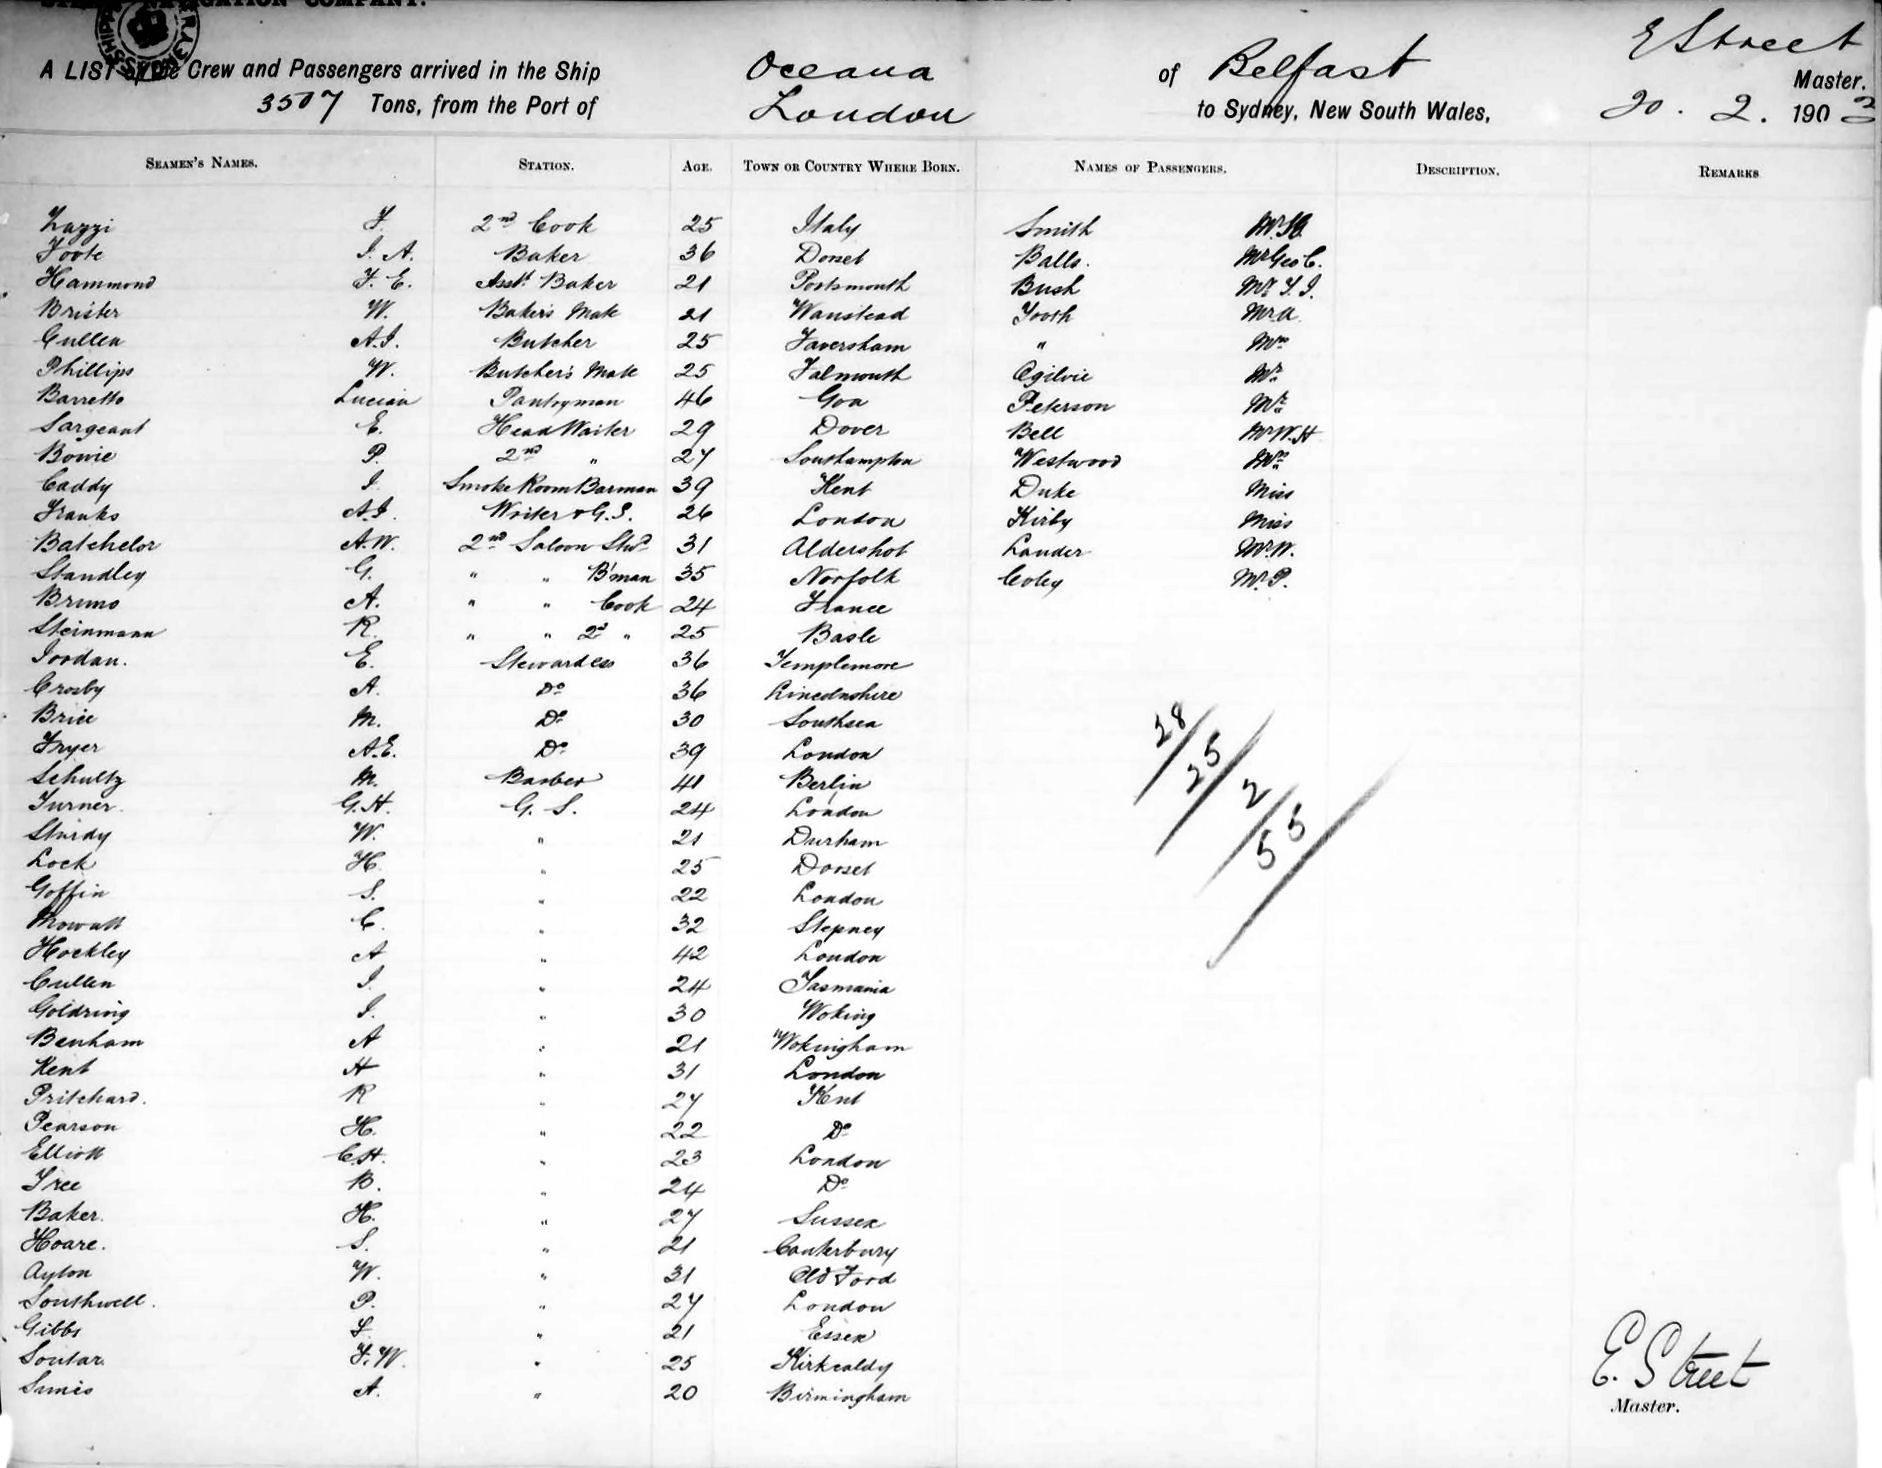 NAVIGATION COMPANY.
A LIST of the Crew and Passengers arrived in the Ship Oceana of Belfast E Street Master.
3507 Tons, from the Port of London to Sydney, New South Wales, 20. 2. 190
SEAMEN'S NAMES. STATION. AGE. TOWN OR COUNTRY WHERE BORN. NAMES OF PASSENGERS. DESCRIPTION. REMARKS
Zazzi F. 2nd Cook 25 Italy Smith Mr
Foote J. A. Baker 36 Dorset Balls. Mr Geo C.
Hammond F. E. Asst. Baker 21 Portsmouth Bush Mr
Brister W. Baker's Mate 21 Wanstead Tooth Mr A.
Cullen A.J. Butcher 25 Faversham " Mrs
Phillips W. Butcher's Mate 25 Falmouth Ogilvie Mr
Barretto Lucian Pantryman 46 Goa Peterson Mr
Sargeant E. Head Waiter 29 Dover Bell Mr W.H
Bowie P. 2nd " 27 Southampton Westwood
Caddy J. Smoke Room Barman 39 Kent Duke Miss
Franks A.J. Writer & G.S. 26 London Kirby Miss
Batchelor A.W. 2nd Saloon Stwd 31 Aldershot Lander Mr W.
Standley G. " " B'man 35 Norfolk Coley Mr P.
Bruno A. " " Cook 24 France
Steinmann R. " " 2d " 25 Basle
Jordan. E. Stewardess 36 Templemore
Crosby A. Do 36 Lincolnshire
Brice M. Do 30 Southsea
Fryer A.E. Do 39 London
Schultz M. Barber 41 Berlin
Turner. G.H. G. S. 24 London
Sturdy W. " 21 Durham
Lock H. " 25 Dorset
Goffin S. " 22 London
Mowatt C. " 32 Stepney
Hockley A " 42 London
Cullen J. " 24 Tasmania
Goldring J. " 30 Woking
Benham A " 21 Wokingham
Kent H " 31 London
Pritchard. R " 27 Kent
Pearson H. " 22 Do
Elliott C.H. " 23 London
Tree B. " 24 Do
Baker. H. " 27 Sussex
Hoare. S. " 21 Canterbury
Ayton W. " 31 Old Ford
Southwell. P. " 27 London
Gibbs " 21 Essex
Soutar. F.W. " 25 Kirkcaldy
A. " 20 Birmingham
28/
25/
2/
55/
E. Street
Master.